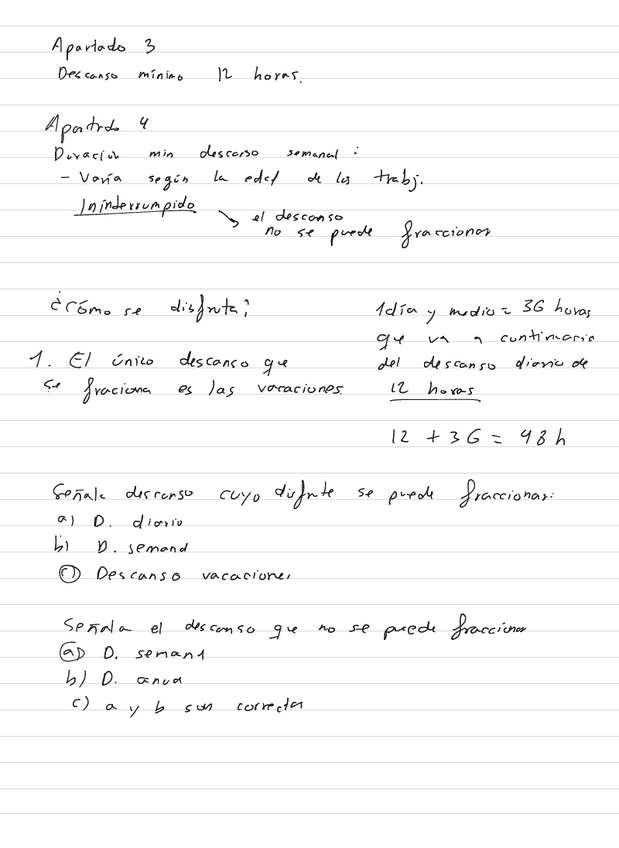 Apartado 3
Descanso mínimo 12 horas.
Apartado 4
Duración min descanso semanal :
- Varía según la edad de los trabj.
Ininderrumpido
el descanso
no se puede fraccionar
¿Cómo se disfruta?
1. El único descanso que
se fracciona es las vacaciones.
1día y medio = 36 horas
que va a continuación
del descanso diario de
12 horas
12 + 36 = 48 h
Señale descanso cuyo disfrute se puede fraccionar:
a) D. diario
b) D. semanal
c) Descanso vacaciones
Señala el descanso que no se puede fraccionar
a) D. semanal
b) D. anual
c) a y b son correctas